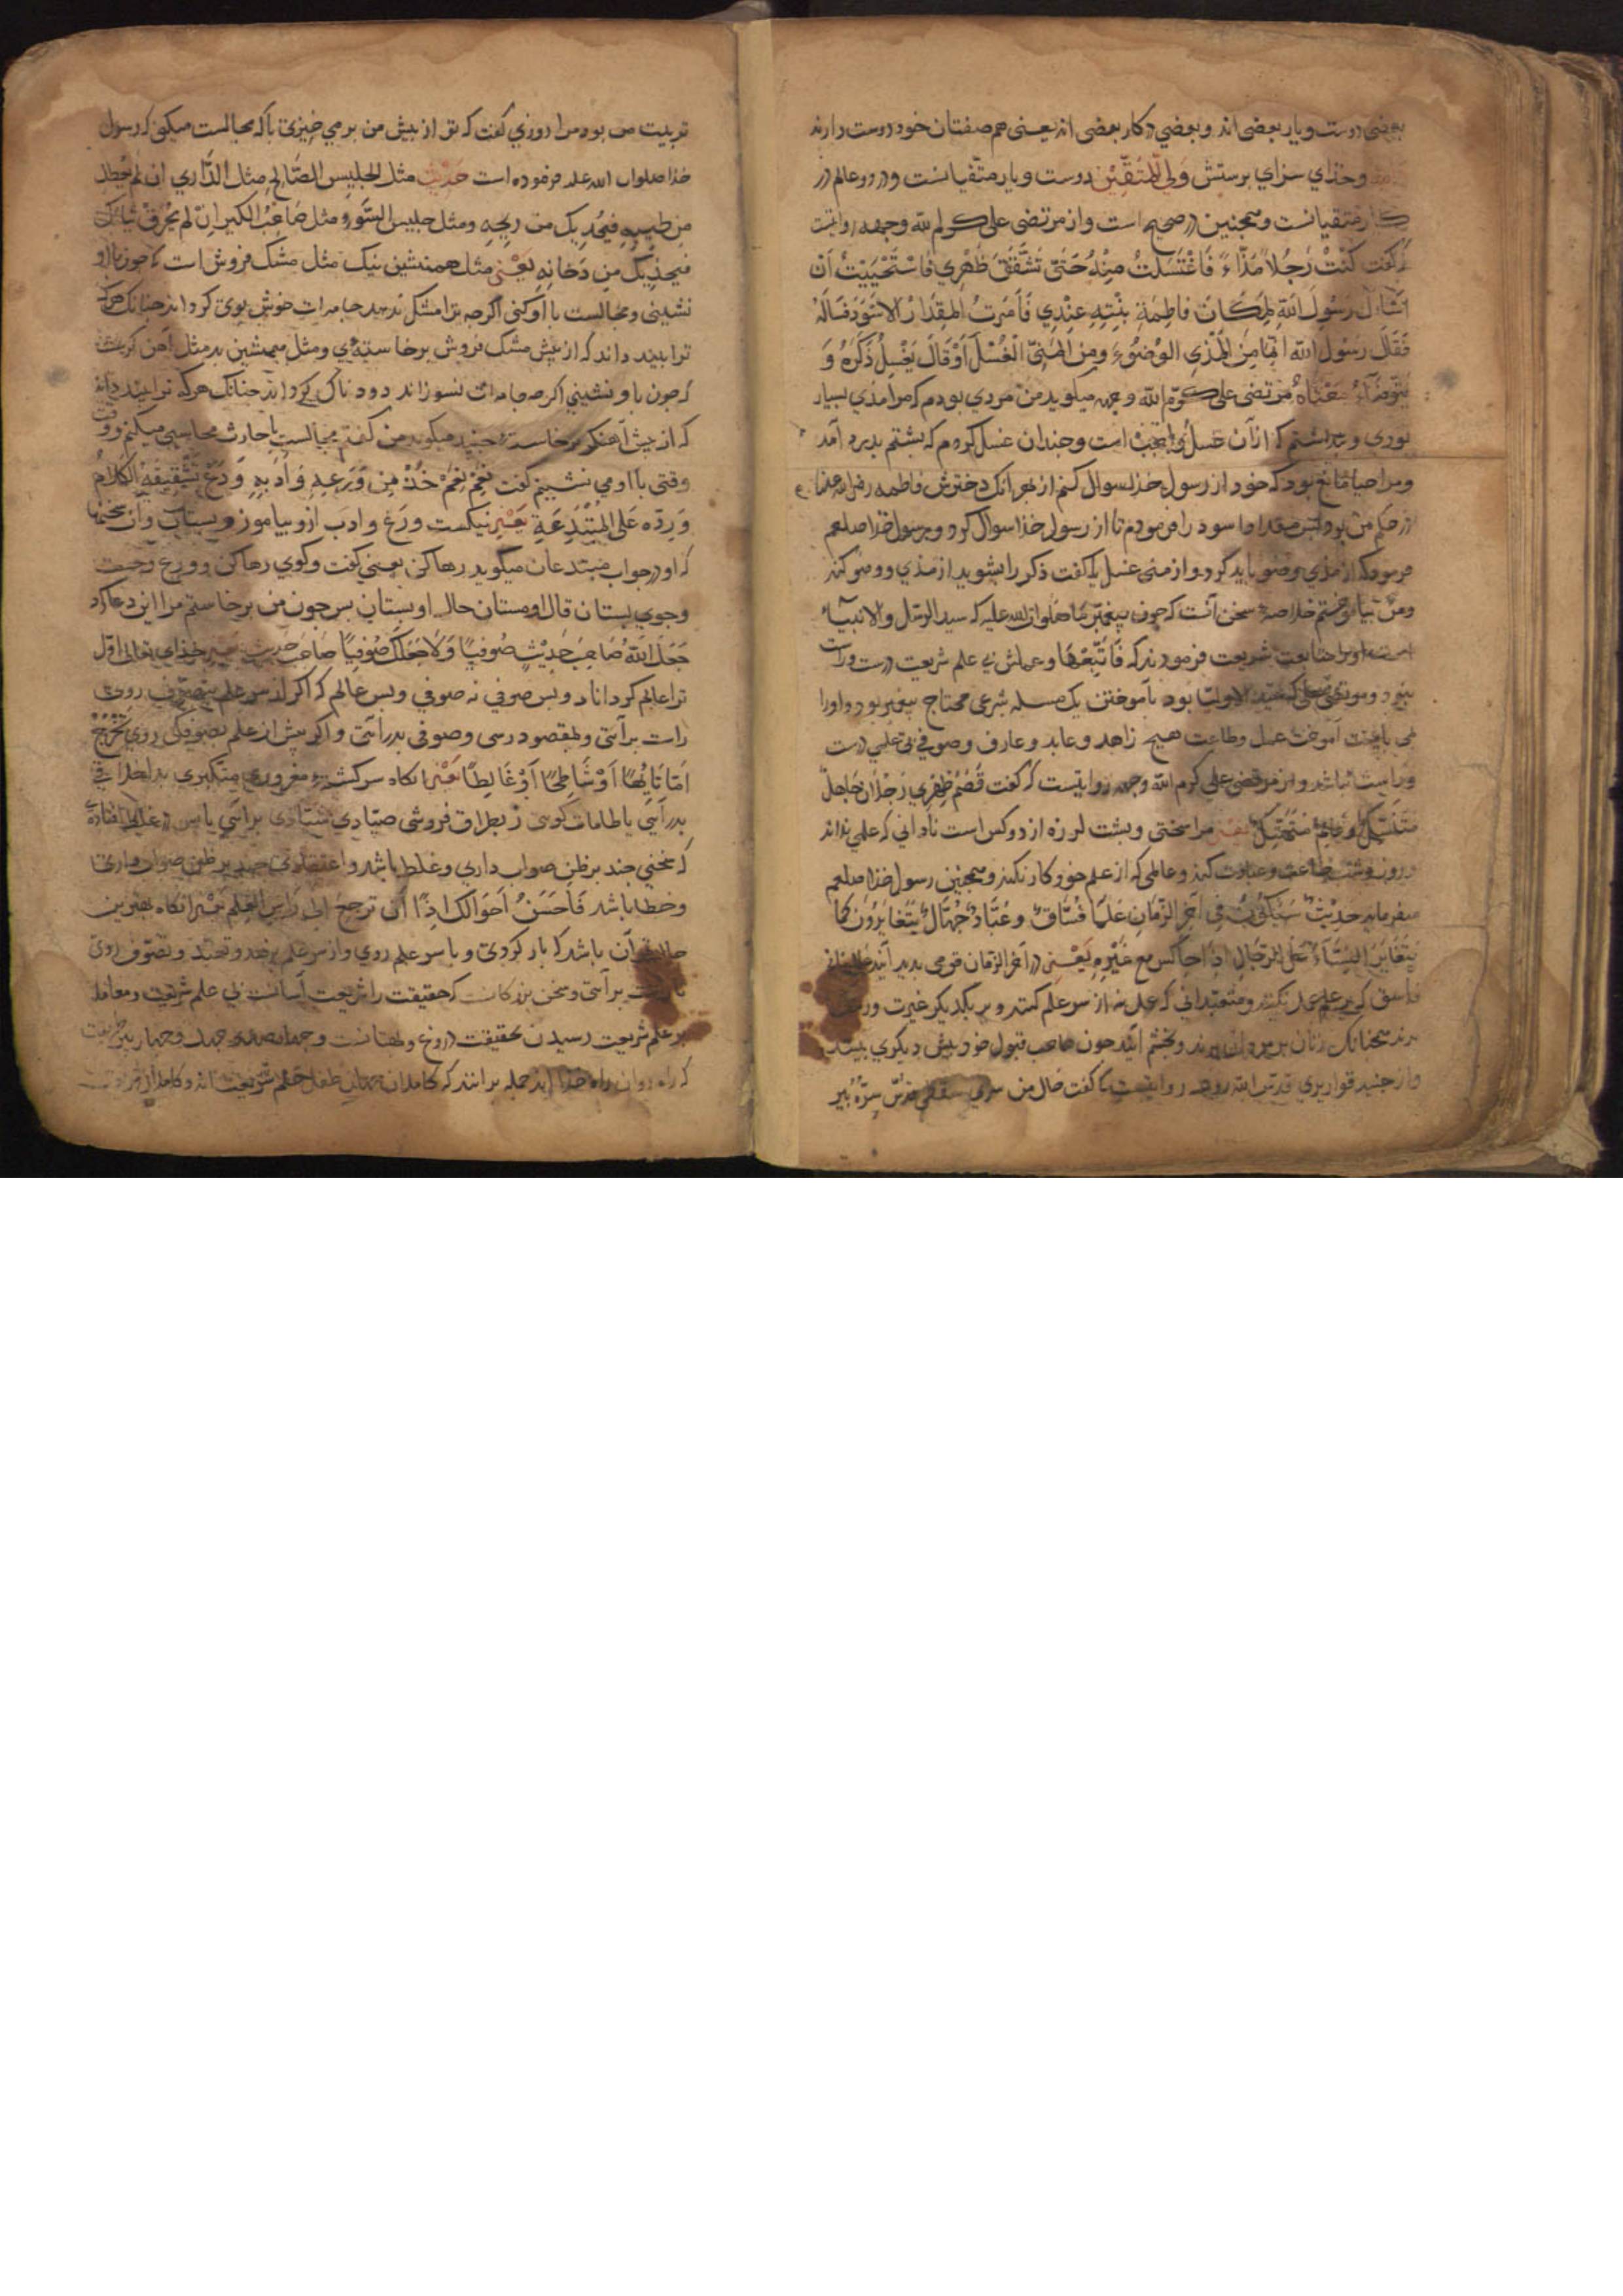 بعضی دوست و یار بعضی اند و بعضی در کار بعضی اند یعنی هم صفتان خود دوست دارند
وخذای سزای برستش وَلِيُّ المُتَّقِيْن دوست و یار متقیانست و در دو عالم در
کار متقیانست و همچنین در صحیح است و از مرتضی علی کرم الله وجهه روایتست
که گفت كُنْتُ رَجُلاً مَذَّاءً فَاغْتَسَلْتُ مِنْهُ حَتّى تَشَقَّقَ ظَهْرِي فَاسْتَحْيَيْتُ اَنْ
اَسْاَلَ رَسُولَ اللهِ لِمَكَانَ فاطِمَةَ بِنْتِهِ عِنْدِي فَاَمَرتُ المِقدَادَ الاَسْوَدَ فَسَالَهُ
فَقَالَ رَسُولُ الله مِنَ المَذْيِ الوُضُوْءُ وَمِنَ المَنِيّ الْغُسْلُ اَوْ قَالَ يَغْسِلُ ذَكَرَهُ وَ
يَتَوَضَّاءُ مَعْنَاهُ مرتضی علی کرّم الله وجهه میکوید من مردی بودم که مرا مذی بسیار
بودی و بنداشتم که از آن غسل واجبست و چندان غسل کردم که بشتم بدرد آمد
ومرا حیا مانع بود که خود از رسول خذا سوال کنم از بهر آنک دخترش فاطمه رضی الله عنها
در حکم من بود پس مقداد اسود را فرمودم تا از رسول خذا سوال کرد و رسول خذا صلعم
فرمود که از مذی وضو باید کرد و از منی غسل یا گفت ذکر را بشوید از مذی و وضو کند
ومن بیاموختم خلاصه سخن آنست که چون پیغمبر ما صلوات الله علیه که سید الرسل والانبیاء
است او را متابعت شریعت فرمودند که فَاتَّبِعْهَا وعملش بی علم شریعت درست و راست
نبود و مرتضی علی که سید الاولیا بود بآموختن یک مسله شرعی محتاج پیغمبر بود و او را
می بایست آموخت عمل وطاعت هیچ زاهد و عابد و عارف و صوفی بی علمی درست
وراست نباشد و از مرتضی علی کرم الله وجهه روایتست که گفت قَصَمَ ظَهْرِي رَجُلَانِ جَاهِلٌ
مُتَنَسِّكٌ وعَالِمٌ مُتَهَتِّكٌ یعنی مرا سختی و بشت لرزه از دو کس است نادانی که علمی نداند
و روز و شب طاعت و عبادت کند و عالمی که از علم خود کار نکند و همچنین رسول خذا صلعم
میفرماید حدیث سَيَكُوْنُ فِي آخِرِ الزَّمَانِ عُلَمَا فُسَّاقٌ وعُبَّادٌ جُهَّالٌ يَتَغَايَرُوْنَ كَمَا
يَتَغَايَرُ النِّسَاءُ عَلَى الرِّجَالِ اِذَا جَالَسَ مَعَ غَيْرِهِ يَعْنِي در آخر الزمان قومی بدید آیند عالمان
فاسق که بر علم عمل نکنند و متعبدانی که عمل نه از سر علم کنند و بر یکدیگر غیرت و رشک
برند همچنانک زنان بر مردان برند و بخشم آیند چون صاحب قبول خود پیش دیگری بینند
و از جنید قواریری قدس الله روحه روایتست که گفت خال من سری سقطی قدّس سرّه پیر
تربیت من بود مرا روزی گفت که تو از پیش من بر می خیزی با که مجالست میکنی که رسول
خذا صلوات الله علیه فرموده است حَدِيْث مثل الجلیس الصَّالِحِ مِثل الدَّارِي ان لَمْ يُعْطِكَ
مِن طِيبِهِ فَيُحْذِيْكَ مِن رِيحِهِ ومثل جلیس السَّوءِ ومثل صَاحِبُ الكِيرِ اِنْ لم يُحْرِقْ ثيابَكَ
فيحذِيْكَ مِن دُخَانِهِ يَعْنِي مثل همنشین نیک مثل مشک فروش است که چون با او
نشینی و مجالست با او کنی اکرچه ترا مشک ندهد جامه ات خوش بوی کرداند چنانک هرکه
ترا بیند داند که از پیش مشک فروش برخاسته ای و مثل همنشین بد مثل آهن کرست
که چون با او نشینی اکرچه جامه ات نسوزاند دود ناک کرداند چنانک هرکه ترا بیند داند
که از پیش آهنگر برخاسته جنید میکوید من گفتم مجالست با حارث محاسبی میکنم و وقت
وقتی با او می نشینم کفت نِعْمَ نِعْمَ خُذْ مِن وَرَعِهِ وَاَدَبِهِ وَدَعْ تَشْقِيْقَهُ الكَلَامَ
وَرَدَّه عَلَى المُبْتَدِعَةِ یَعْنِي نیکست ورع وادب ازو بیاموز و بستان وآن سخنها
که او در جواب مبتدعان میکوید رها کن یعنی کفت و کوی رها کن و ورع و جست
وجوی بستان قال او مستان حال او بستان بس چون من بر خاستم مرا این دعا کرد
جَعَلَ اللّهُ صَاحِبَ حَدِيْثٍ صُوفِيًا وَلاَ جَعَلَكَ صُوْفِيًا صَاحِبَ حَدِيث یعنی خذای تعالی اوّل
ترا عالم کرداناد و پس صوفی نه صوفی و پس عالم که اکر از سر علم بتصوّف روی
راست برآئی و بمقصود رسی و صوفی بدرآئی و اکر پیش از علم بصوفی روی تَخْرُجُ
اِمّا تَايِهًا اَوْ شَاطِحًا اَوْ غَالِطًا یَعْنِي آنکاه سرکشته مغروری متکبری بد اخلاقی
بدرآئی یا طامات کوی زبراق فروشی صیّادی شیّادی برآئی یا بس در غلط افتاده
که سخنی چند بر ظن صواب داری و غلط باشد و اعتقادی چند بر ظن صواب داری
وخطا باشد فَاَحْسَنُ اَحْوَالكَ اِذًا اَن ترجعَ الى رَأس العِلم یعنی آنکاه بهترین
حالت آن باشد که باز کردی و با سر علم روی و از سر علم بزهد و تعبّد و تصوّف روی
تا راست برآئی و سخن بزرکانست که حقیقت را شریعت آسانست بی علم شریعت و معامله
بر علم شریعت رسیدن بحقیقت دروغ و بهتانست و
که راه روان راه خذا اند جمله برانند که کاملان جهان طفل علم شریعت اند